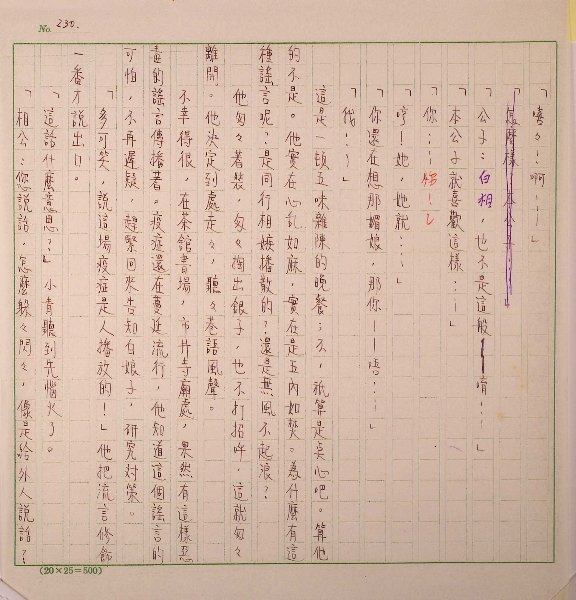 No. 230.
「唔々！啊！──」
「怎麼樣！本公子
「公子：白相，也不是這般──唷！──」
「本公子就喜歡這樣：──」
「你……
「哼！她，她就……」
「你還在想那媚娘，那你──唔……」
「我……」
這是一頓五味雜陳的晚餐；不，祇算是桌心吧。算他
的不是。他實在心亂如麻，實在是五內如焚。為什麼有這
種謠言呢？是同行相嫉播散的？還是無風不起浪？
他匆々著裝，匆々掏出銀子，也不打招呼，這就匆々
離開。他決定到處走々，聽々巷語風聲。
不幸得很，在茶館書場，市井寺廟處，果然有這樣惡
毒的謠言傳播著。疫症還在蔓延流行，他知道這個謠言的
可怕，不再遲疑，趕緊回來告知白娘子，研究對策。
「多可笑，說這場疫症是人播放的！」他把流言修飾
一番才說出口。
「這話什麼意思？」小青聽到先惱火了。
「相公：您說話，怎麼躲々閃々，像是給外人說話？
(20×25=500)